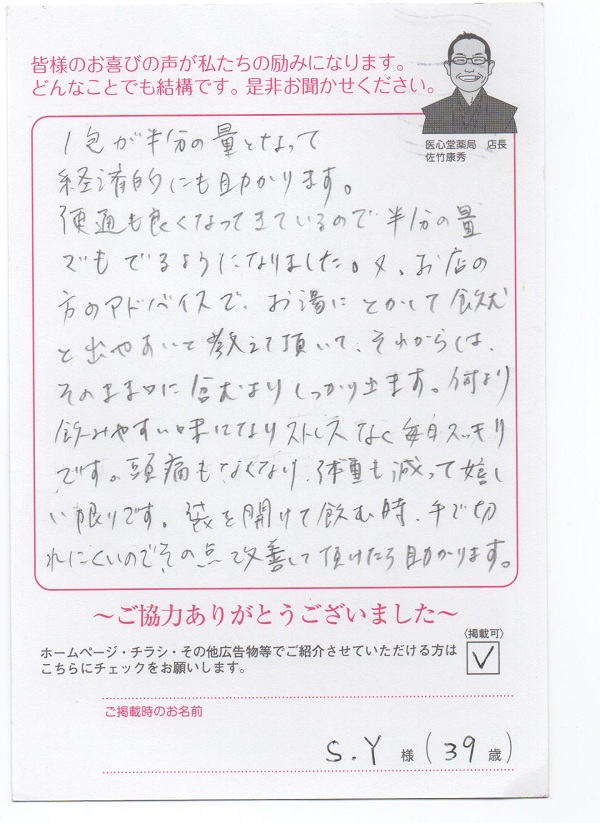 皆様のお喜びの声が私たちの励みになります。
どんなことでも結構です。是非お聞かせください。
医心堂薬局 店長
佐竹康秀
1包が半分の量となって
経済的にも助かります。
便通も良くなってきているので半分の量
でもでるようになりました。又、お店の
方のアドバイスで、お湯にとかして飲むと
出やすいと教えて頂いて、それからは、
そのまま口に含むよりしっかり出ます。何より
飲みやすい味になりストレスなく毎日スッキリ
です。頭痛もなくなり、体重も減って嬉し
い限りです。袋を開けて飲む時、手で切
れにくいのでその点で改善して頂けたら助かります。
～ご協力ありがとうございました～
ホームページ・チラシ・その他広告物等でご紹介させていただける方は
こちらにチェックをお願いします。
〈掲載可〉
ご掲載時のお名前
S.Y 様 (39歳)